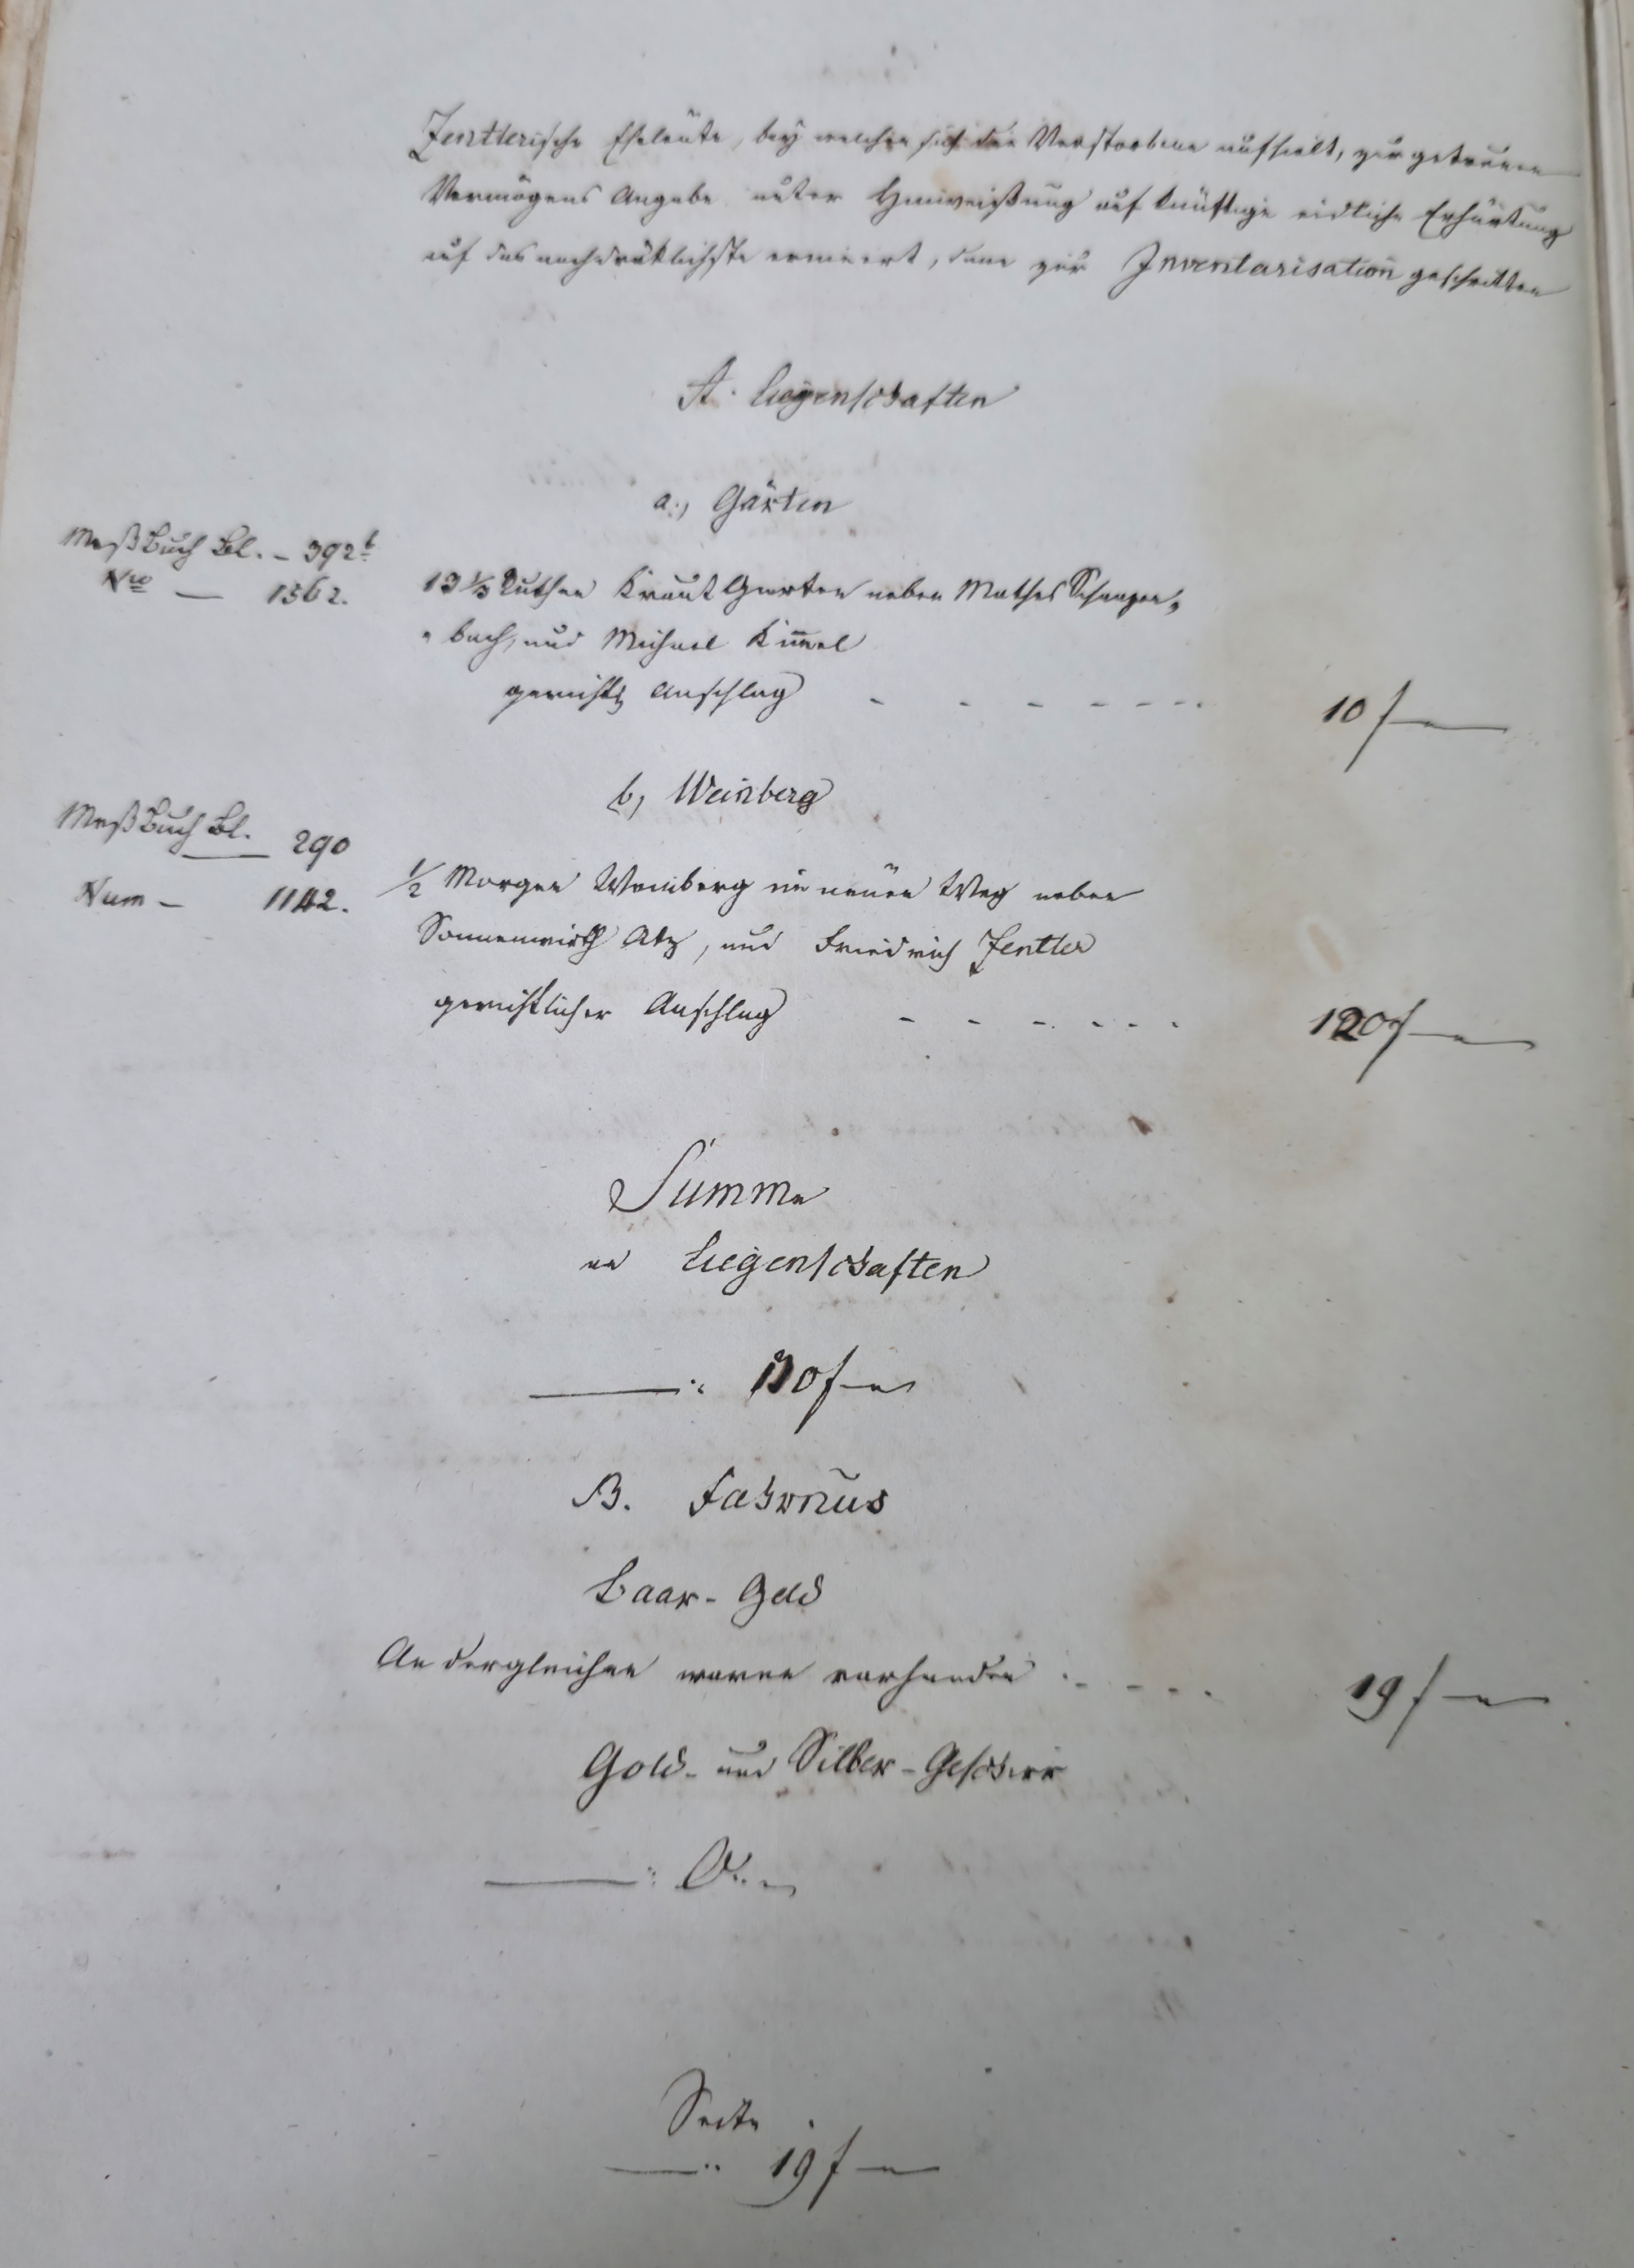 Zentlerische Eheleute, bey welchen sich der Verstorbene aufhielt, zur getreuen
Vermögens Angabe unter Hinweißung auf künftige eidliche Erhärtung
auf das nachdrüklichste erinnert, dann zur Inventarisation geschritten
A. Liegenschaften
a., Gärten
Meßbuch Bl. - 392b
Nro — 1562.
13 1/3 Ruthen Krautgarten neben Mathes
bach, und Michael Kim̅el
gerichtl. Anschlag - - - - - -
10 f —
b, Weinberg
Meßbuch Bl. 290
Num - 1142.
1/2 Morgen Weinberg im neuen Weg neben
Sonnenwirth Atz, und Friedrich Zentler
gerichtlicher Anschlag - - - - - -
120 f —
Summe
an Liegenschaften
—— : 130 f —
B. Fahrnus
Baar-Geld
An dergleichen waren vorhanden - - - -
19 f —
Gold- und Silber-Geschirr
—— : 0. —
Seite
—— : 19 f —